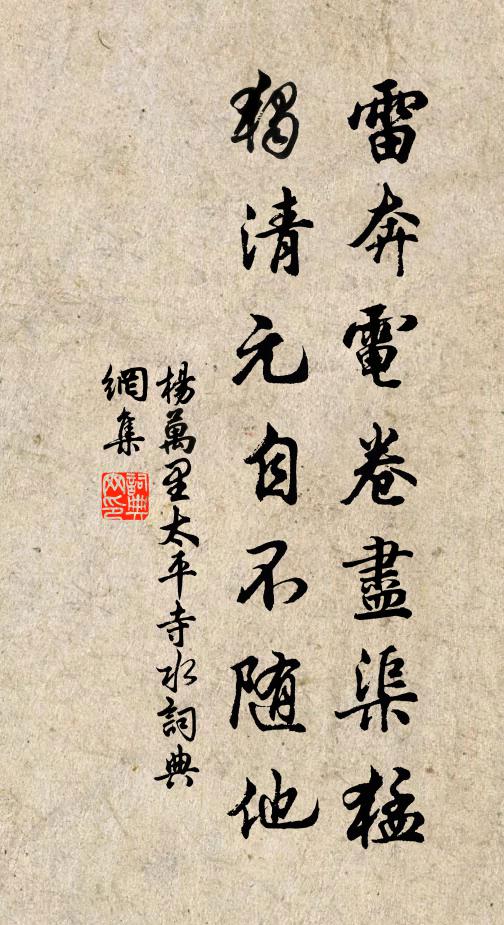 雷奔電卷盡渠猛
獨清元自不隨他
楊萬里太平寺水詞典
網集
詞典
網印